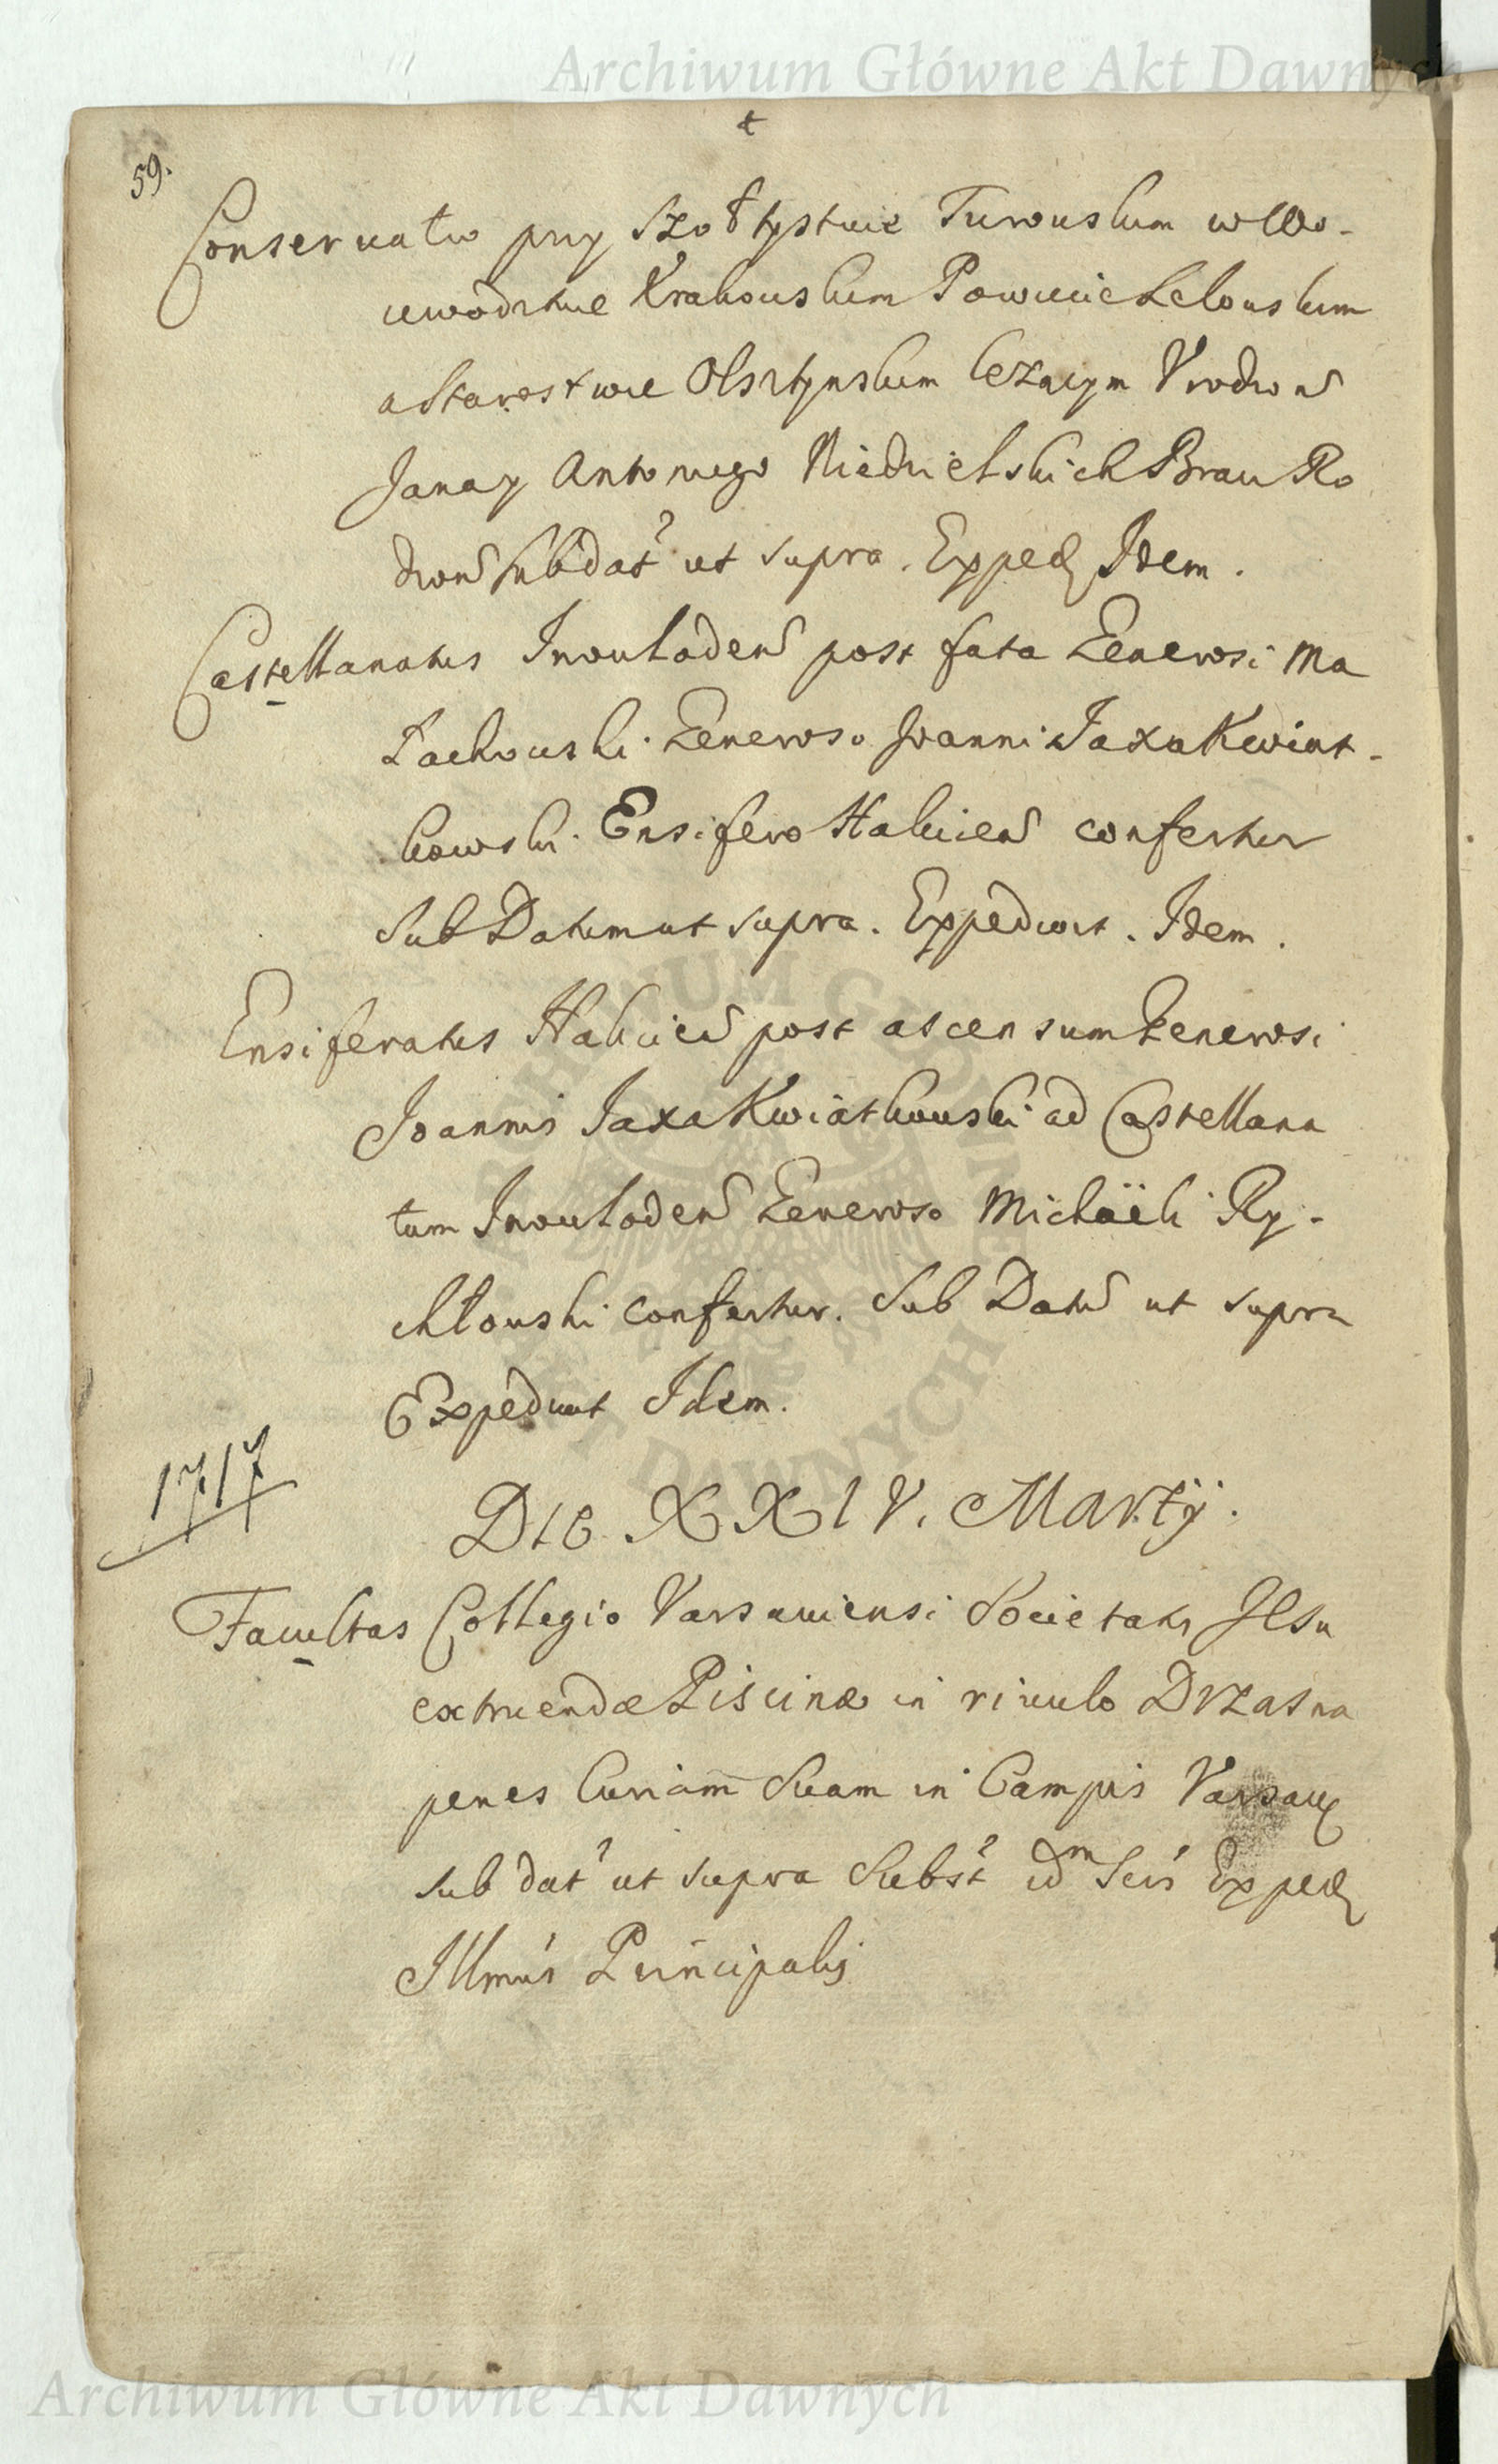 Archiwum Główne Akt Dawnych
59.
Conservatio przy Szołtystwie Turowskim w Wo-
iewodztwie Krakowskim Powiecie Lelowskim
a Starostwie Olsztynskim lezacym Urodzon
Jana y Antoniego Niedzielskich Braci Ro
dzon sub dat ut supra. Exped Idem.
Castellanatus Inouloden post fata Generosi Ma
Lachowski. Generoso Joanni Jaxa Kwiat-
kowski. Ensifero Halicien confertur
Sub Datum ut supra. Expedivit. Idem.
Ensiferatus Halicien post ascensum Generosi
Joannis Jaxa Kwiatkowski ad Castellana
tum Inouloden Generoso Michaëli Ry-
chłowski confertur. Sub Datu ut supra
Expediunt Idem.
1717
DIE XXIV. Martÿ.
Facultas Collegio Varsaviensi Societatis Jesu
extruendæ Piscinæ in rivulo Drzasna
penes Curiam Suam in Campis Varsav
sub dat ut supra Subst idm Seis Exped
Illmus Principalis
Archiwum Główne Akt Dawnych